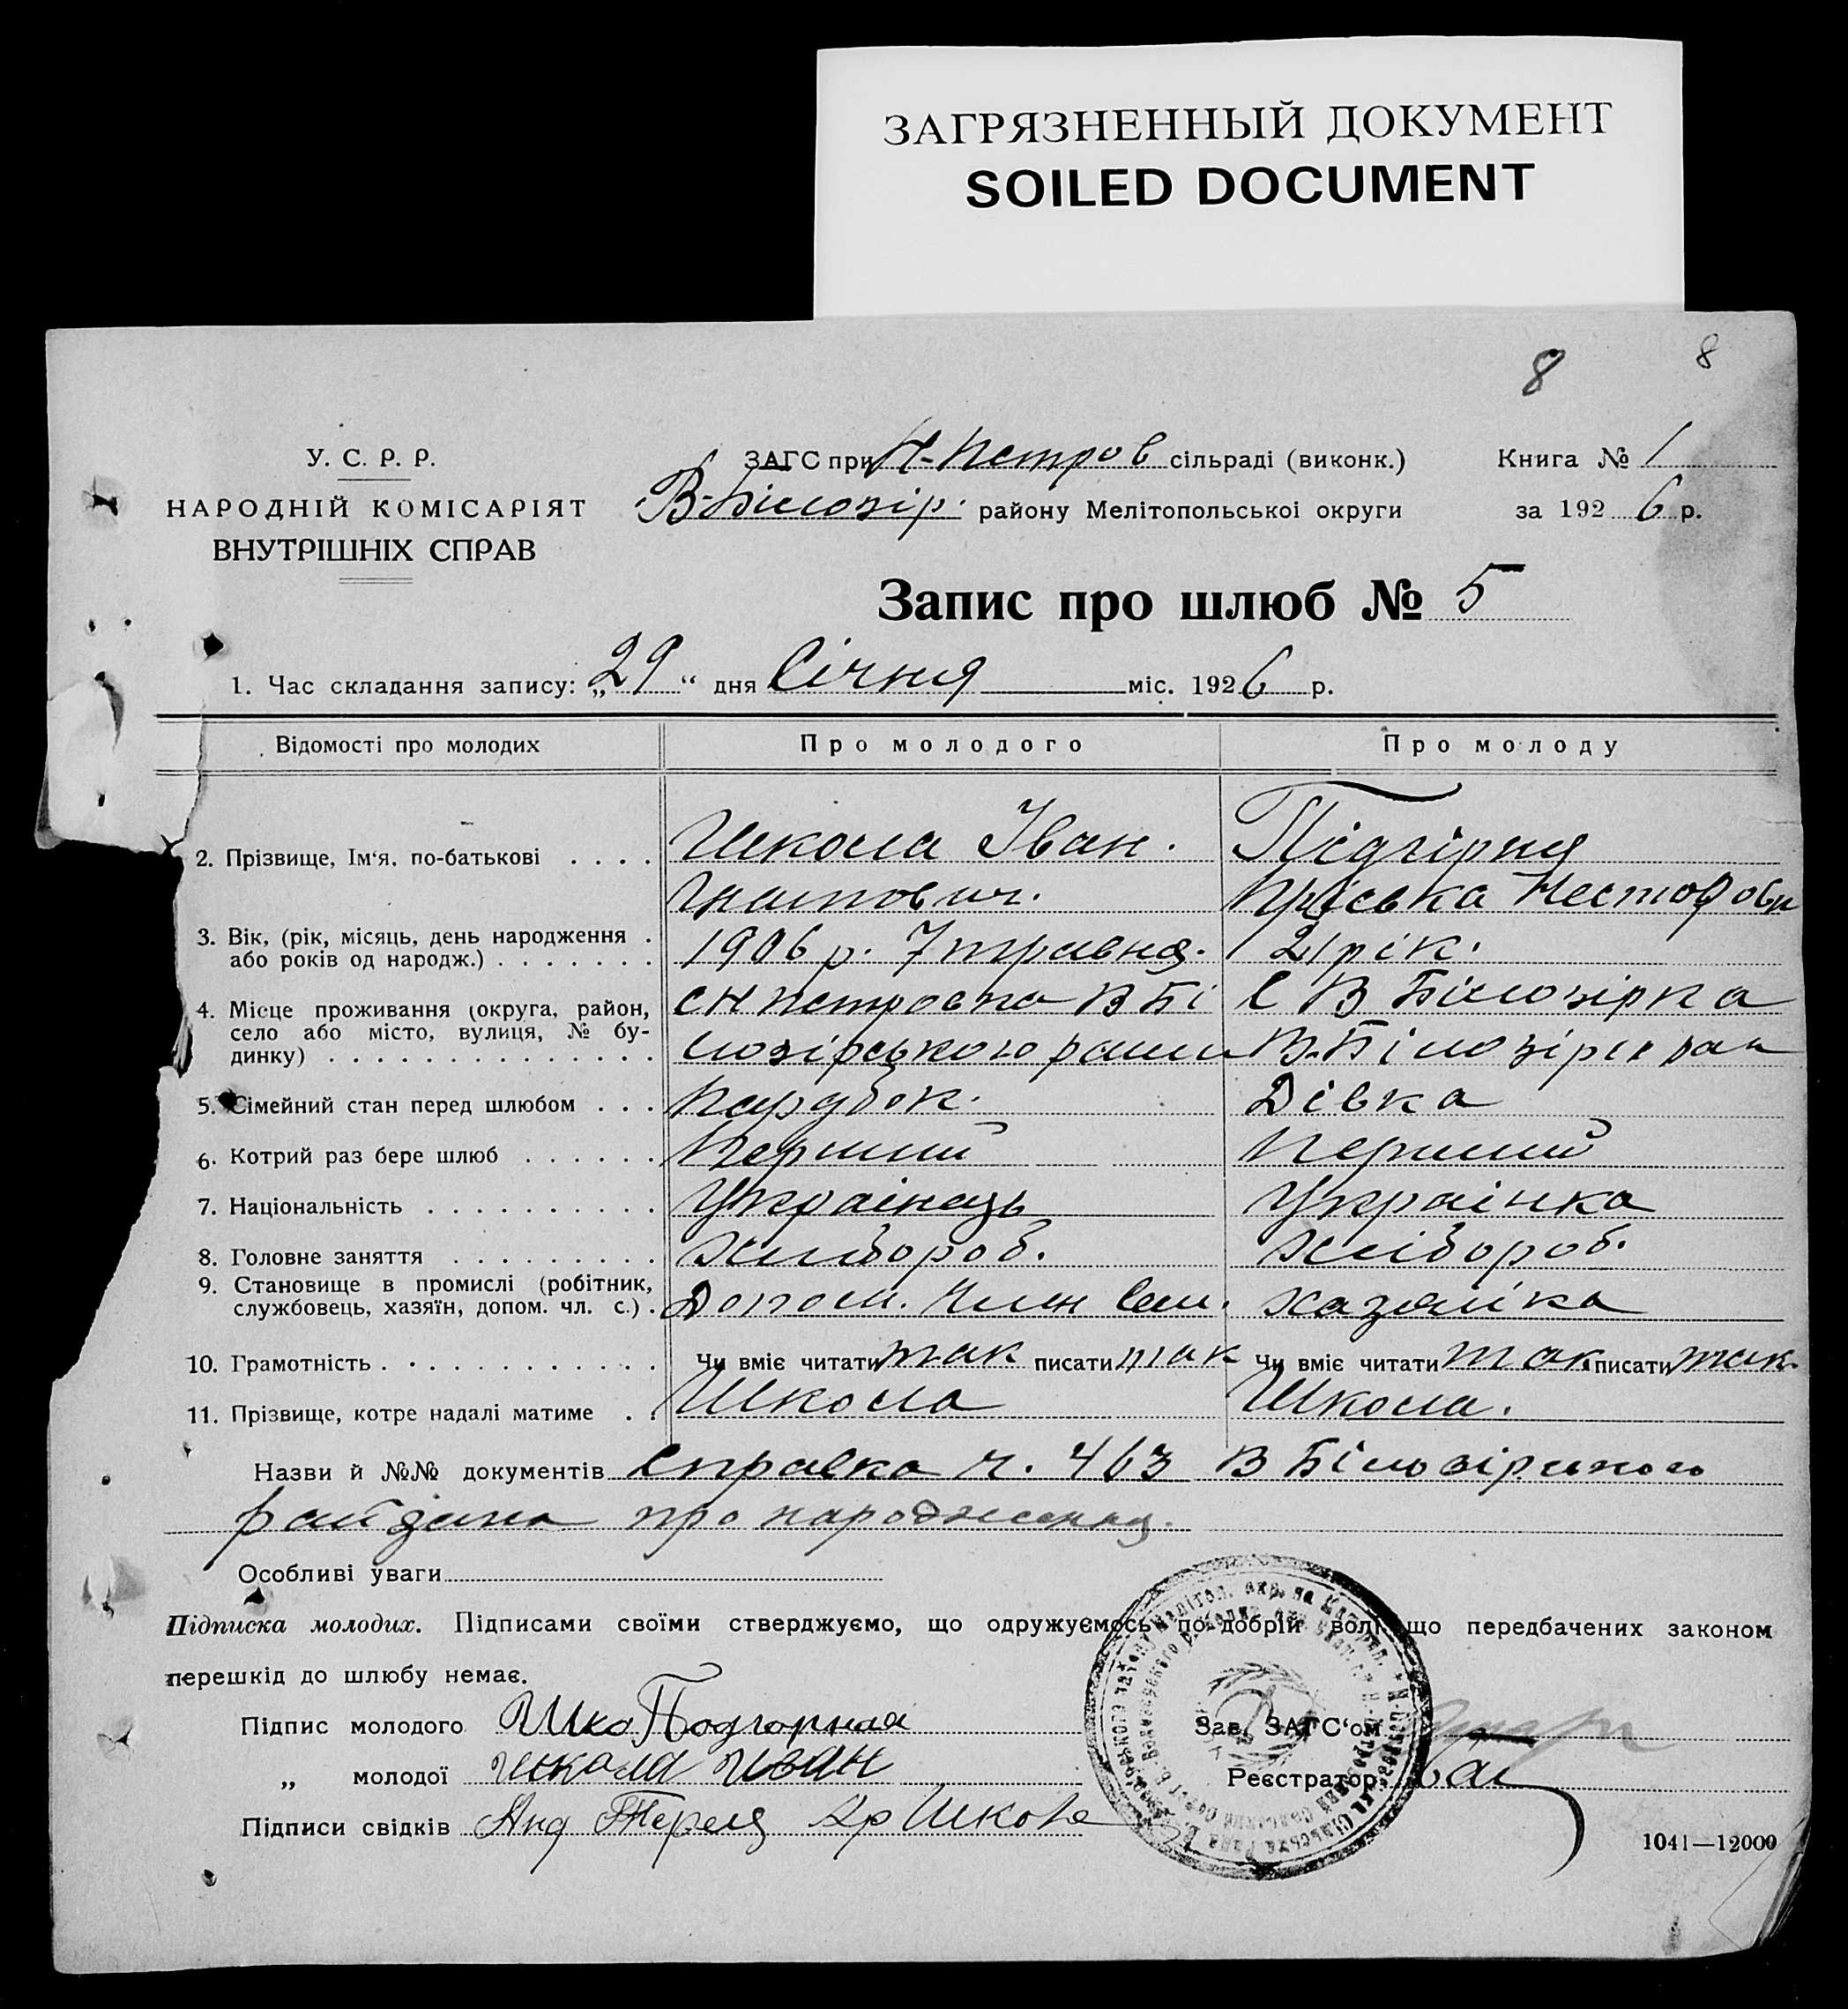 ЗАГРЯЗНЕННЫЙ ДОКУМЕНТ
SOILED DOCUMENT
8 8
У. С. Р. Р.
НАРОДНІЙ КОМІСАРІЯТ
ВНУТРІШНІХ СПРАВ
ЗАГС при Н-Петров сільраді (виконк.)
В-Білозір. району Мелітопольської округи
Книга № 1
за 1926 р.
Запис про шлюб № 5
1. Час складання запису: „29“ дня Січня міс. 1926 р.
Відомості про молодих Про молодого Про молоду
2. Прізвище, Ім‘я, по-батькові . . . . Школа Іван. Підгірня
Гнатович. Пріська Нестеровн
3. Вік, (рік, місяць, день народження .
або років од народж.) . . . . . . . 1906 р. 7 травня. 21 рік.
4. Місце проживання (округа, район, С Н Петровка В Бі С В Білозірка
село або місто, вулиця, № бу-
динку) . . . . . . . . . . . . . . лозірського В.-Білозірск
5. Сімейний стан перед шлюбом . . . Парубок. Дівка
6. Котрий раз бере шлюб . . . . . . Перший Перший
7. Національність . . . . . . . . . . Українець Українка
8. Головне заняття . . . . . . . . . Хлібороб. Хлібороб.
9. Становище в промислі (робітник,
службовець, хазяїн, допом. чл. с.) . Допом. Член Сем. хазяйка
10. Грамотність . . . . . . . . . . . . Чи вміє читати так писати так Чи вміє читати так писати так
11. Прізвище, котре надалі матиме . . Школа Школа.
Назви й №№ документів Справка ч. 463 В Білозірського
про народження.
Особливі уваги
Підписка молодих. Підписами своїми стверджуємо, що одружуємось по добрій волі що передбачених законом
перешкід до шлюбу немає.
Підпис молодого Шко Подгорная
„ молодої школа иван
Підписи свідків Школа
Зав. ЗАГС‘ом
Реєстратор
1041—12000